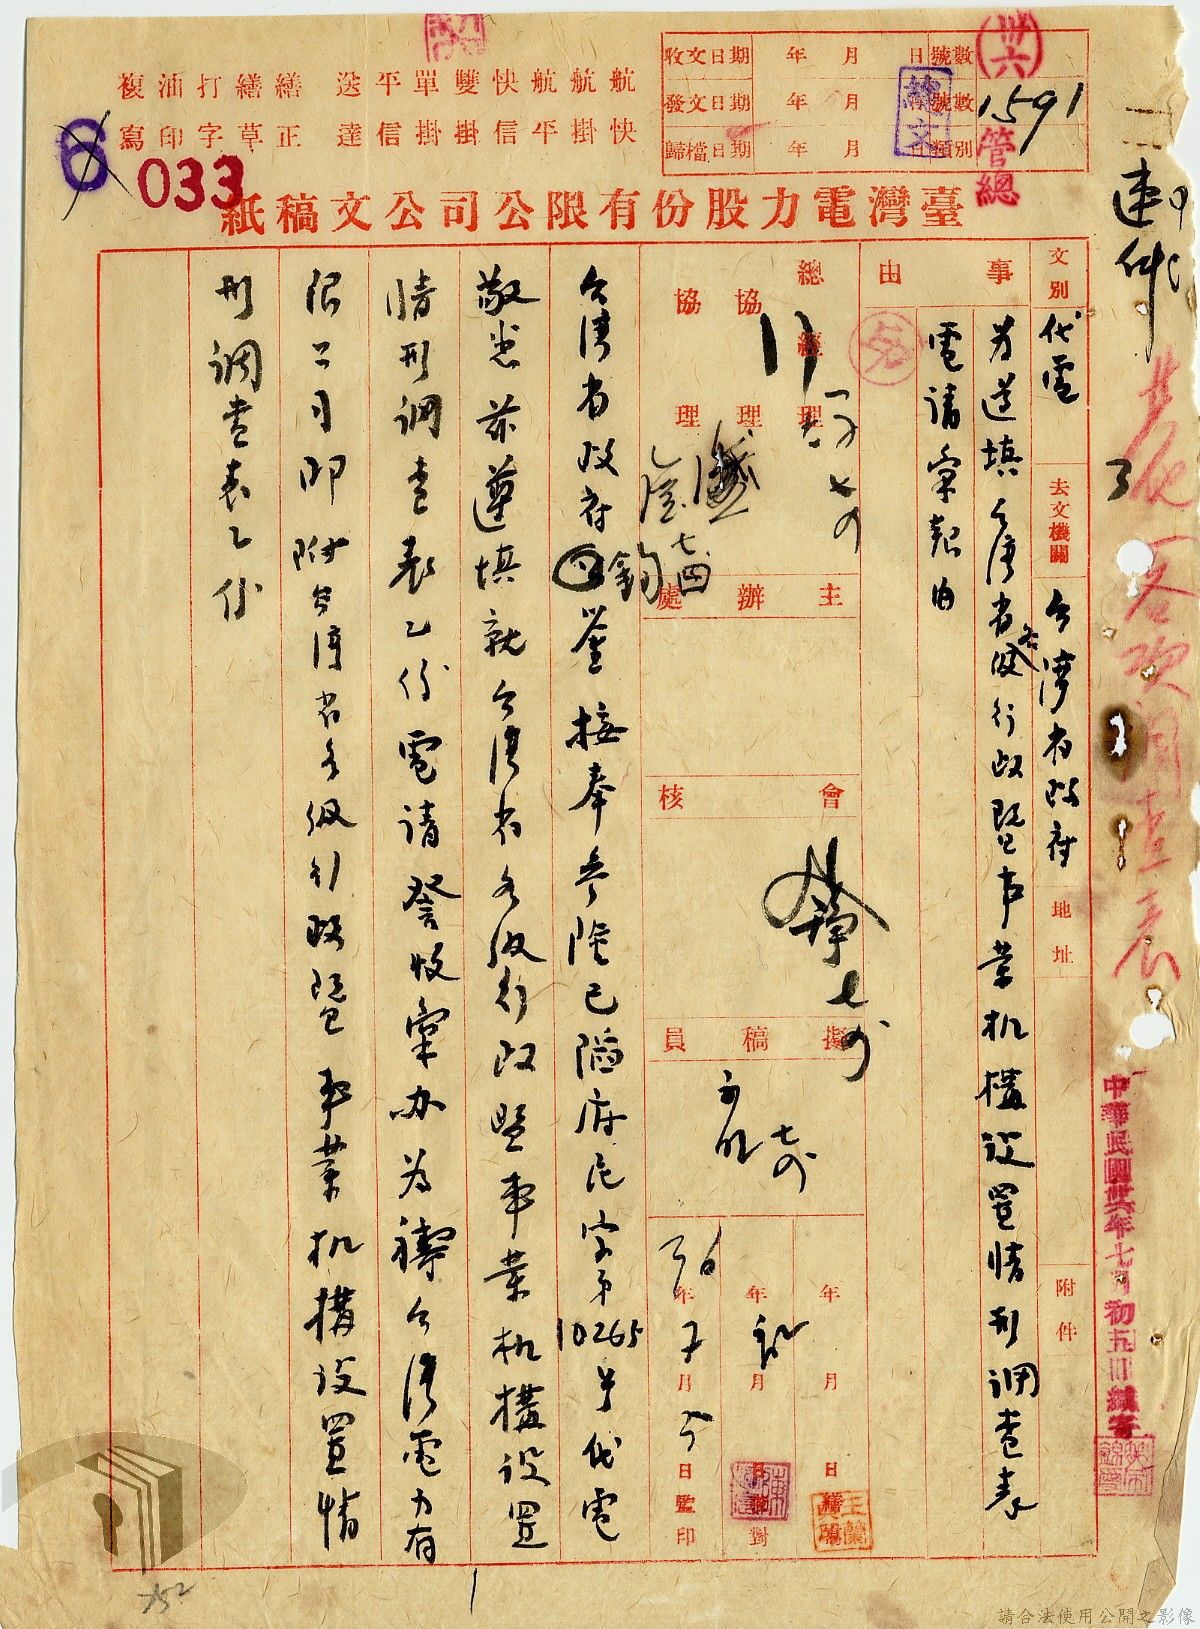 收文日期 年 月 日 號數
發文日期 年 月 日 號數 1591
歸檔日期 年 月 日 類別
(卅六)
管總
總文
航航航快雙單平送 繕繕打油複
快掛平信掛掛信達 正草字印寫
6
033
臺灣電力股份有限公司公文稿紙
速件
中華民國卅六年七月初五日繕寄
文別 代電 去文機關 台灣省政府 地址 附件
事由
為遵填台灣省各級行政暨事業机構設置情形調查表
電請彙報由
總經理
協理
協理
主辦處
會核
擬稿員
年 月 日
年 月 日 校對
36年7月5日監印
台灣省政府鈞鑒接奉參陸已 府民字第10265号代電
敬悉茲遵填就台灣省各級行政暨事業机構設置
情形調查表乙份電請詧收彙办為禱台灣電力有
限公司叩附台灣省各級行政暨事業机構設置情
形調查表乙份
752
請合法使用公開之影像